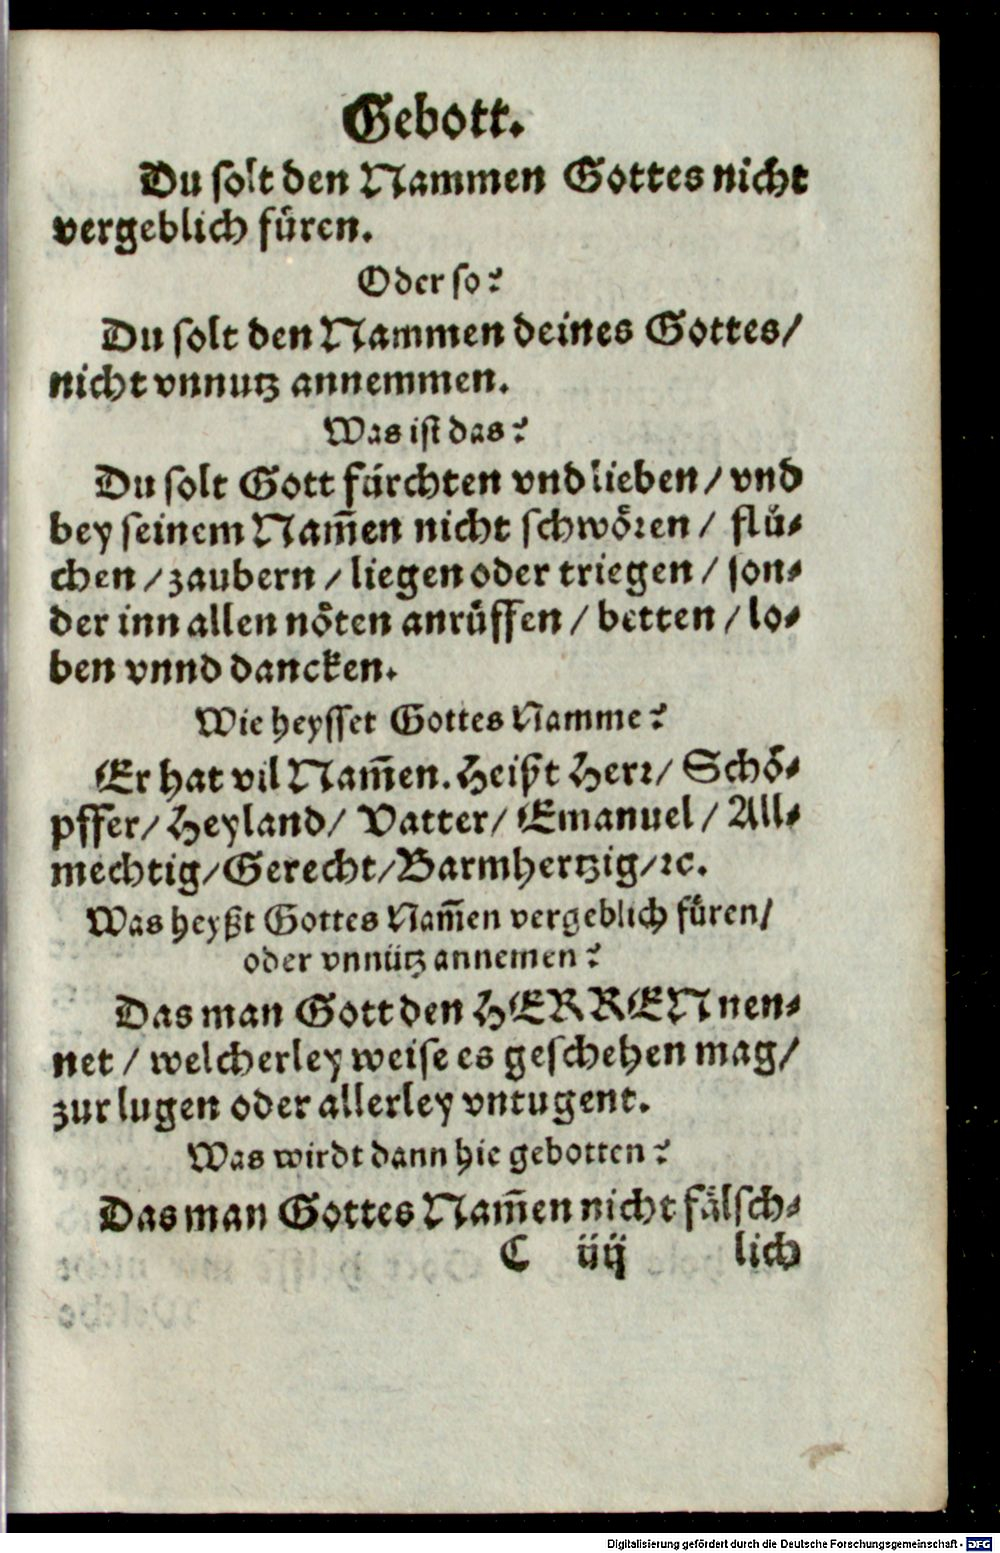 Gebott.
Du solt den Nammen Gottes nicht
vergeblich fuͤren.
Oder so?
Du solt den Nammen deines Gottes/
nicht vnnutz annemmen.
Was ist das?
Du solt Gott fürchten vnd lieben / vnd
bey seinem Nam̄en nicht schwoͤren / fluͦ⸗
chen / zaubern / liegen oder triegen / son⸗
der inn allen noͤten anruͤffen / betten / lo⸗
ben vnnd dancken.
Wie heysset Gottes Namme?
Er hat vil Nam̄en. Heißt Herr/ Schoͤ⸗
pffer/ Heyland/ Vatter/ Emanuel / All⸗
mechtig/ Gerecht/ Barmhertzig/ ꝛc.
Was heyßt Gottes Nam̄en vergeblich fuͤren/
oder vnnütz annemen?
Das man Gott den HERREN nen⸗
net / welcherley weise es geschehen mag/
zur lugen oder allerley vntugent.
Was wirdt dann hie gebotten?
Das man Gottes Nam̄en nicht faͤlsch⸗
C iiij lich
Digitalisierung gefördert durch die Deutsche Forschungsgemeinschaft - DFG